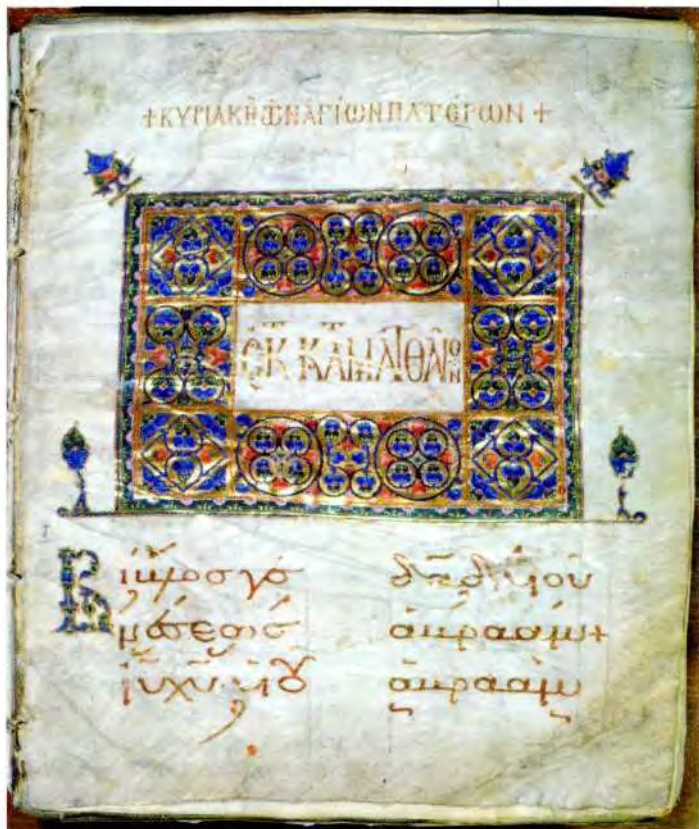 +ΚΥΡΙΑΚΗ ΤΩΝ ΑΓΙΩΝ ΠΑΤΕΡΩΝ +
ΕΚ Τ ΚΑΤ ΜΑΤΘΑΙΟΝ
Βίβλος γε
νέσεως
ιυ χυ υιου
δαδ υιου
αβρααμ+
αβρααμ